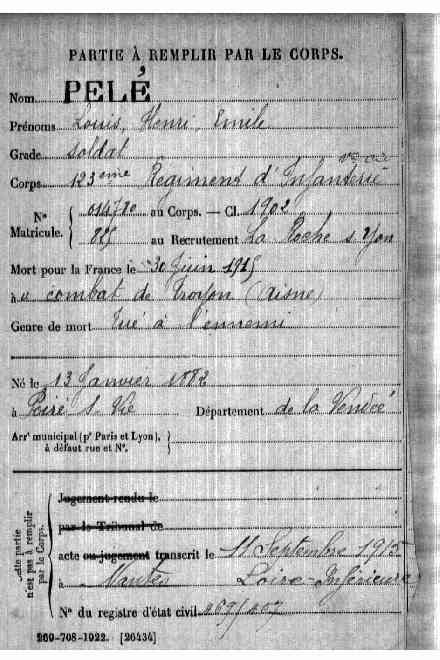 PARTIE À REMPLIR PAR LE CORPS.
Nom PELÉ
Prénoms Louis, Henri, Emile
Grade soldat
Corps 123eme Regiment d'Infanterie
N° Matricule. { 014720 au Corps. — Cl. 1902
825 au Recrutement La Roche s Yon
Mort pour la France le 30 Juin 1915
à u combat de Troyon (Aisne)
Genre de mort Tué à l'ennemi
Né le 13 Janvier 1882
à Poiré s. Vie Département de la Vendée
Arrt municipal (pr Paris et Lyon), à défaut rue et N°. }
Cette partie n'est pas à remplir par le Corps. {
Jugement rendu le
par le Tribunal de
acte ou jugement transcrit le 11 Septembre 1915
à Nantes Loire-Inférieure
N° du registre d'état civil
269-708-1922. [26434]